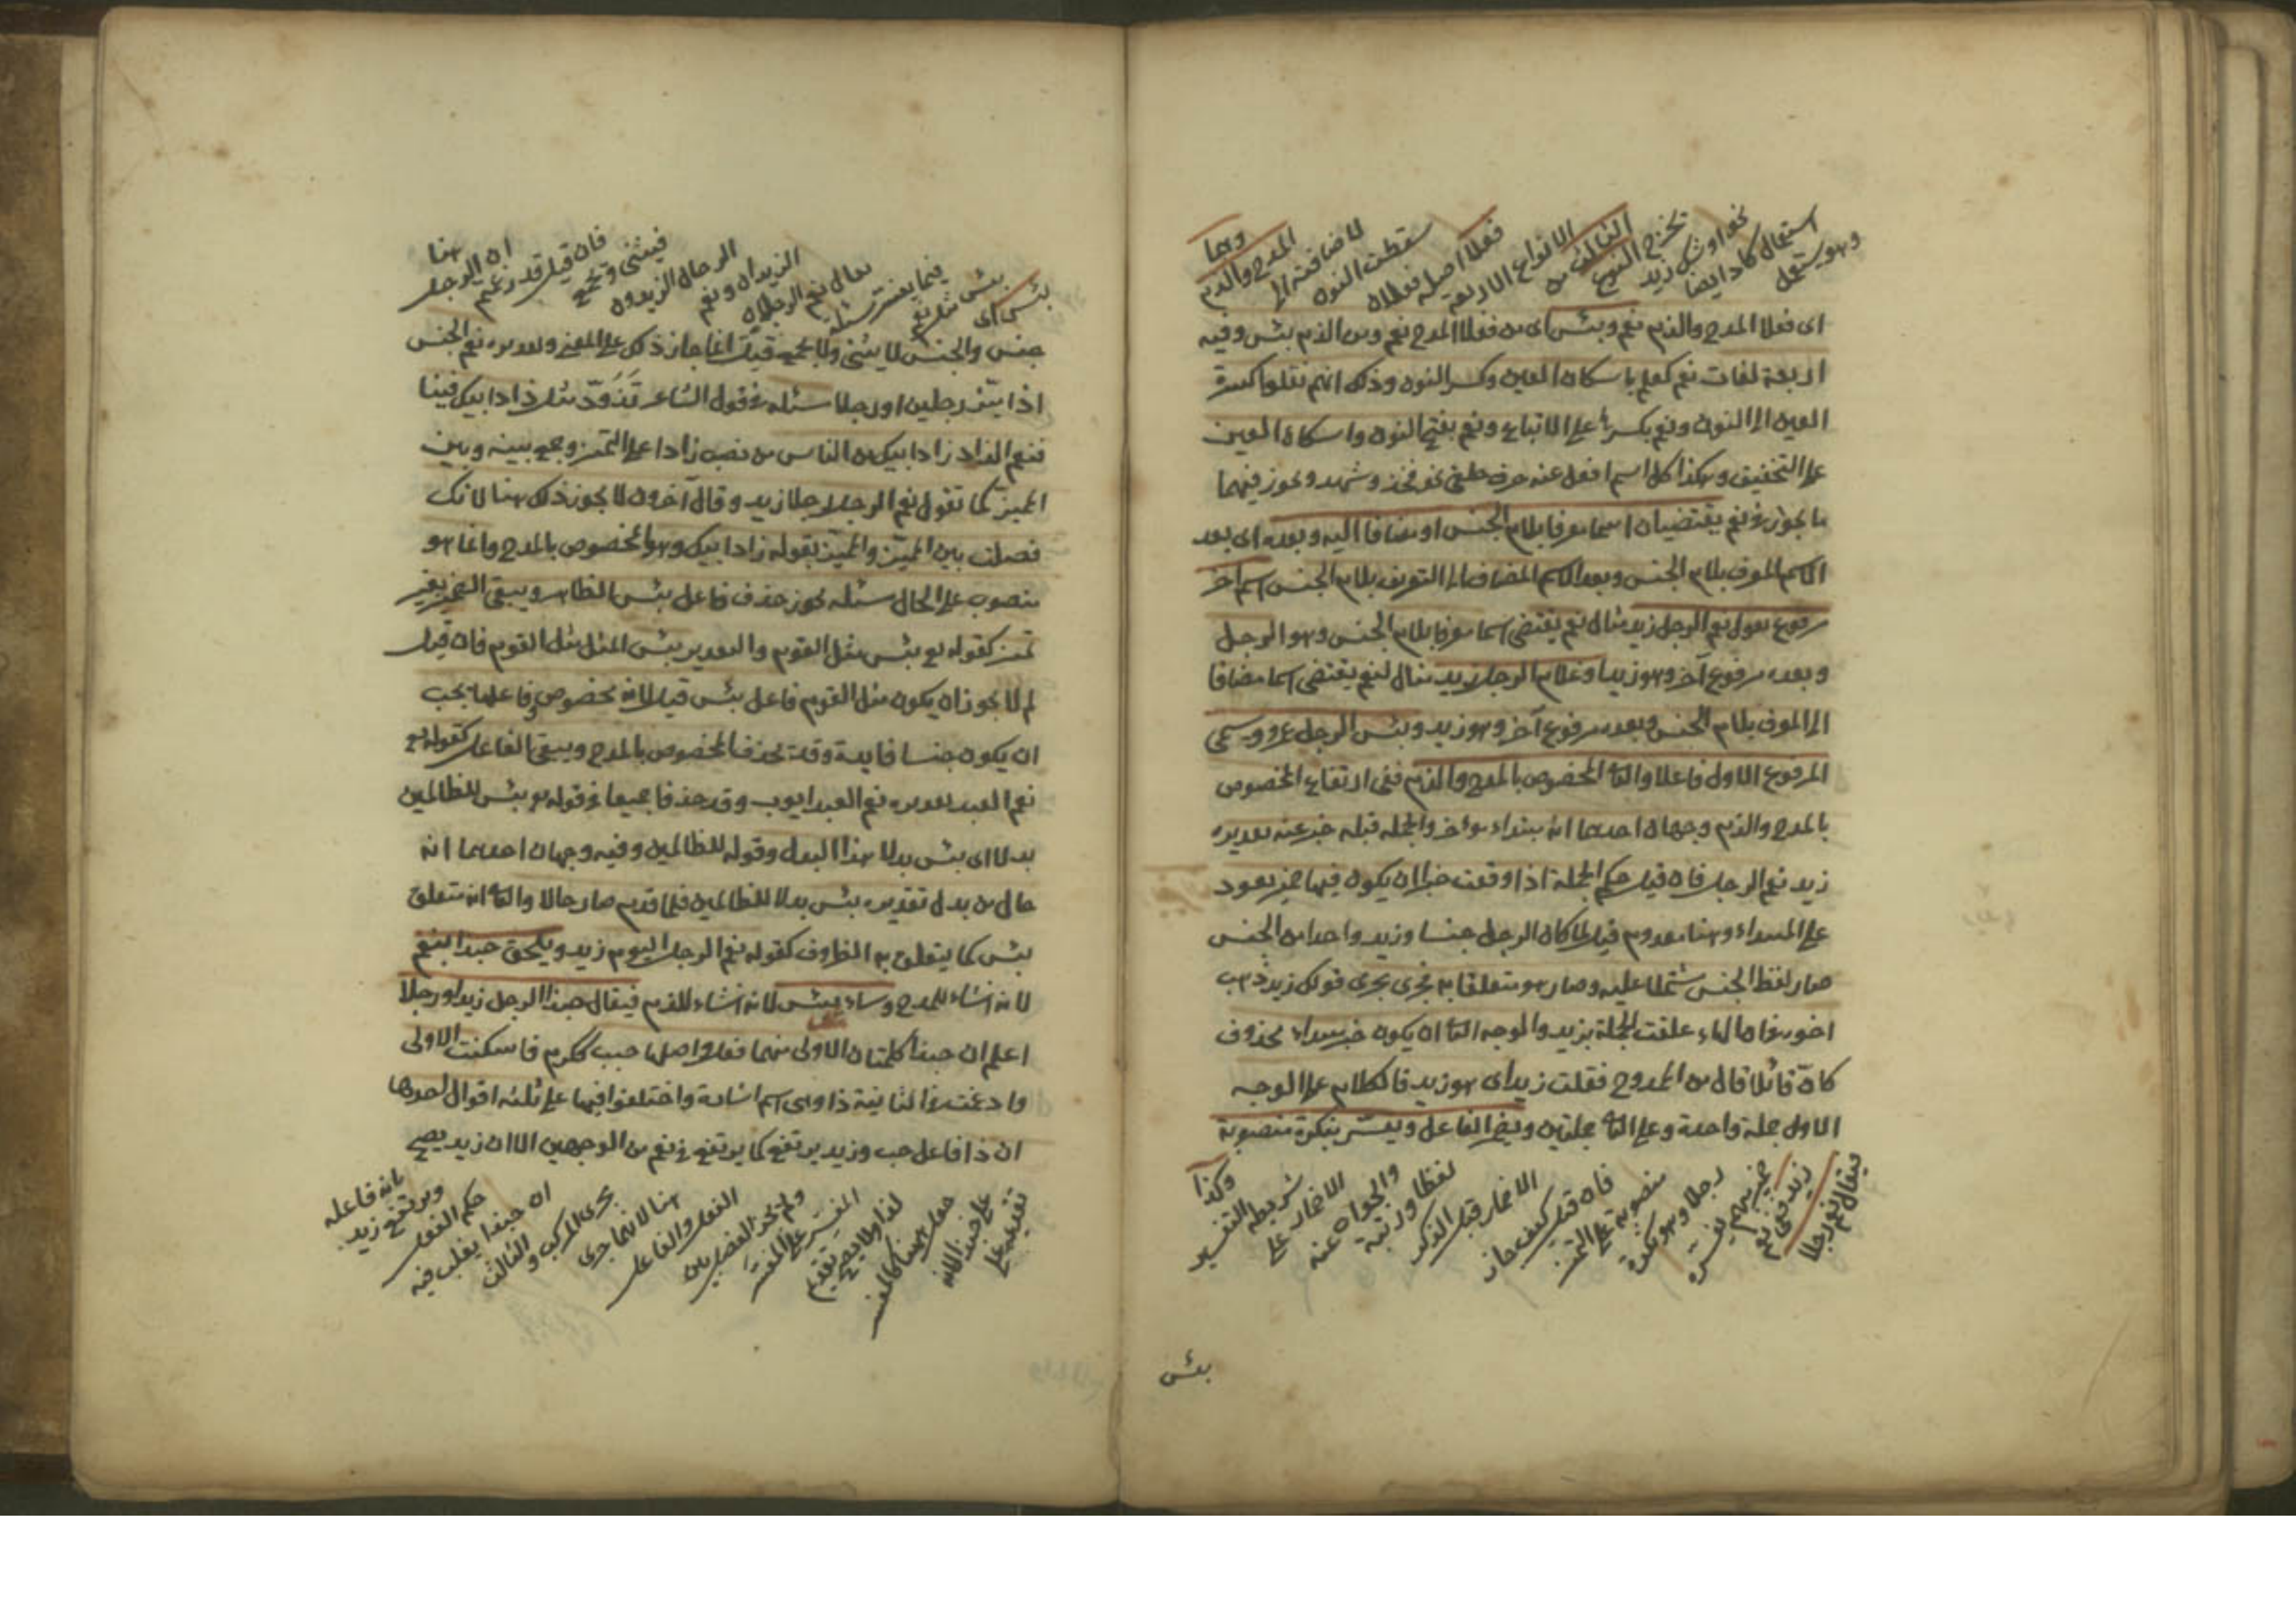 وهو يستعمل
استعمال كاد ايضا
نحو اوشك زيد
تخرج النوع
الثالث من
الانواع الاربعة
فعلا اصله فعلان
سقطت النون
لاضافته الى
المدح والذم
وهما
اى فعلا المدح والذم نعم وبئس اى من فعلا المدح نعم ومن الذم بئس وفيه
اربعة لغات نعم كعلم باسكان العين وكسر النون وذلك انهم نقلوا كسرة
العين الى النون ونعم بكسرها على الاتباع ونعم بفتح النون واسكان العين
على التخفيف وهكذا كل اسم او فعل عنه حرف حلقى نحو فخذ وشهد ويجوز فيهما
ما يجوز فى نعم يقتضيان اسما معرفا بلام الجنس او مضافا اليه وبعده اى بعد
الاسم المعرف بلام الجنس وبعد الاسم المضاف الى التعريف بلام الجنس اسم آخر
مرفوع نحو نعم الرجل زيد مثال نعم يقتضى اسما معرفا بلام الجنس وهو الرجل
وبعده مرفوع آخر وهو زيد او غلام الرجل زيد مثال لنعم يقتضى اسما مضافا
الى المعرف بلام الجنس وبعده مرفوع آخر وهو زيد وبئس الرجل عمرو ويسمى
المرفوع الاول فاعلا والثانى المخصوص بالمدح والذم ففى ارتفاع المخصوص
بالمدح والذم وجهان احدهما انه مبتداء مؤخر والجملة قبله خبر عنه تقديره
زيد نعم الرجل فان قيل حكم الجملة اذا وقعت خبرا ان يكون فيها ضمير يعود
على المبتداء وهنا معدوم قيل لما كان الرجل جنسا وزيد واحد من الجنس
صار لفظ الجنس مشتملا عليه وصار هو متعلقا به فجرى مجرى قولك زيد ذهب
اخوه فاما الهاء علقت الجملة بزيد والوجه الثانى ان يكون خبر مبتداء محذوف
كان قائلا قال من الممدوح فقلت زيد اى هو زيد فالكلام على الوجه
الاول جملة واحدة وعلى الثانى جملتين ويضمر الفاعل ويفسر بنكرة منصوبة
فيقال نعم رجلا
زيد ففى نعم
ضمير مبهم يفسره
رجلا وهو نكرة
منصوبة على التميز
فان قيل كيف جاز
الاضمار قبل الذكر
لفظا ورتبة
والجواب عنه
الاضمار على
شريطة التفسير
وكذا
بئس
بئس اى
بئس مثل نعم
فيما يفسر مسئلة
يقال نعم الرجلان
الزيدان ونعم
الرجال الزيدون
فيثنى وتجمع
فان قيل قد زعمتم
ان الرجل
هنا
جنس والجنس لا يثنى ولا يجمع قيل انما جاز ذلك على المعنى وتقديره نعم الجنس
اذا ميز رجلين او رجلا مسئلة فى قول الشاعر تزود مثل زاد ابيك فينا
فنعم الزاد زاد ابيك من الناس من نصب زادا على التميز وجمع بينه وبين
المميز كما تقول نعم الرجل رجلا زيد وقال آخرون لا يجوز ذلك هنا لانك
فصلت بين المميز والمميز بقوله زاد ابيك وهو المخصوص بالمدح وانما هو
منصوب على الحال مسئلة يجوز حذف فاعل بئس الظاهر ويبقى الضمير بغير
تميز كقوله تع بئس مثل القوم والتقدير بئس المثل مثل القوم فان قيل
لم لا يجوز ان يكون مثل القوم فاعل بئس قيل لانه مخصوص وفاعلها يجب
ان يكون جنسا فائدة وقد يحذف المخصوص بالمدح ويبقى الفاعل كقوله تع
نعم العبد تقديره نعم العبد ايوب وقد حذفا جميعا فى قوله تع بئس للظالمين
بدلا اى بئس بدلا هذا البدل وقوله للظالمين وفيه وجهان احدهما انه
حال من بدل تقديره بئس بدلا للظالمين فلما قدم صار حالا والثانى انه متعلق
بئس كما يتعلق به الظروف كقوله نعم الرجل اليوم زيد ويلحق حبذا بنعم
لانه انشاء للمدح وساء ببئس لانه انشاء للذم فيقال حبذا الرجل زيد او رجلا
اعلم ان حبذا كلمتان الاولى منهما فعل واصلها حبب ككرم فاسكنت الاولى
وادغمت فى الثانية ذا وهى اسم اشارة واختلفوا فيها على ثلثة اقوال احدها
ان ذا فاعل حب وزيد يرتفع كما يرتفع فى نعم من الوجهين الا ان زيد يصح
تقديمه على
على حبذا لانه
جعل ههنا كالمفسر
لذا ولا يصح تقديم
المفسر على المفسر
ولم يجز الفصل بين
الفعل والفاعل
هنا لانهما جرى
مجرى المركب والثالث
ان حبذا يغلب فيه
حكم الفعل
ويرتفع زيد
بانه فاعله